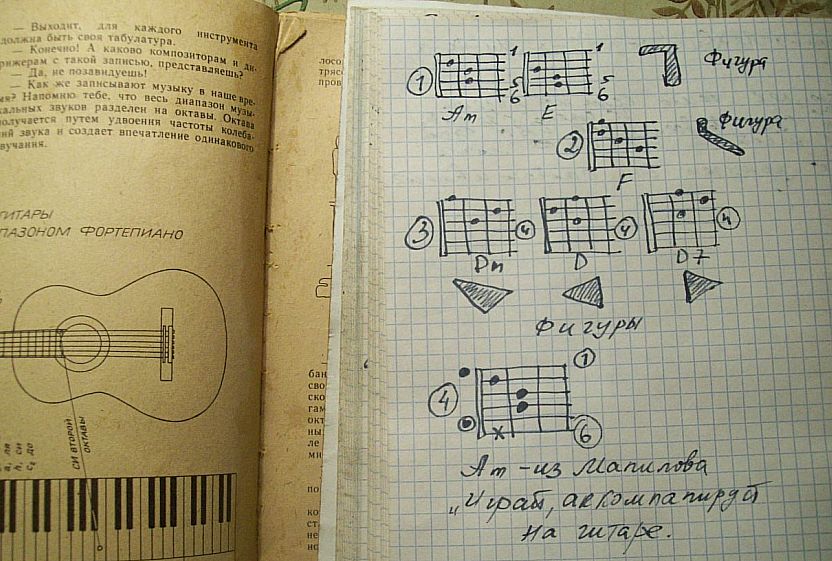 — Выходит, для каждого инструмента
должна быть своя табулатура.
— Конечно! А каково композиторам и ди-
рижерам с такой записью, представляешь?
— Да, не позавидуешь!
— Как же записывают музыку в наше вре-
мя? Напомню тебе, что весь диапазон музы-
кальных звуков разделен на октавы. Октава
получается путем удвоения частоты колеба-
ний звука и создает впечатление одинакового
звучания.
ГИТАРЫ
ПАЗОНОМ ФОРТЕПИАНО
СИ ВТОРОЙ
ОКТАВЫ
лосо
тряс
пров
бан
сво
ско
гам
окт
ны
ле
ми
по
ко
ст
не
но
1 1 1 Фигура
5 5
6 6
Am E
2 Фигура
F
3 4 4 4
Dm D D7
Фигуры
4 1
6
Am - из Манилова
"Играй, аккомпанируй
на гитаре.